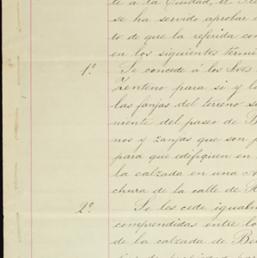 te a la Ciudad, el
se ha servido aprobar
to de que la referida con
en los siguientes termi
1º. Se concede á los Sres
Zenteno para si y lo
las fanjas del terreno s
mente del paseo de B
nos y zanjas que son p
para que edifiquen en
la calzada en una A
chura de la calle de R
2º. Se les cede igualm
comprendidas entre lo
de la calzada de Be